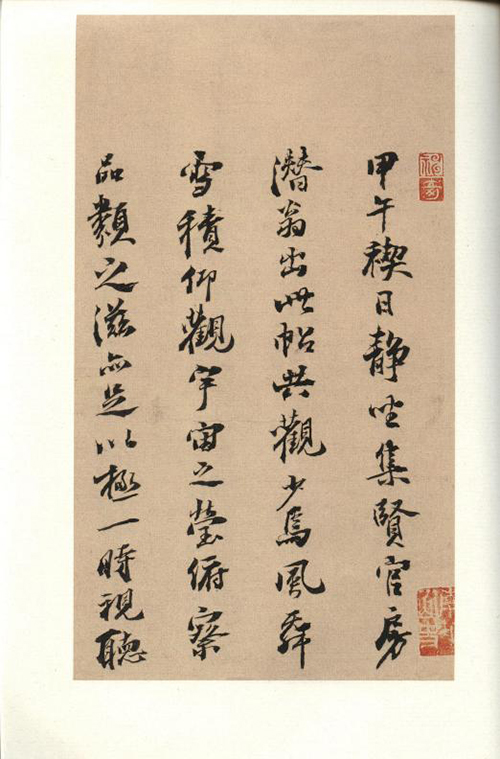 甲午禊日静坐集賢官房
潛翁出此帖共觀少焉風舞
雪積仰觀宇宙之瑩俯察
品類之滋亦足以極一時視聽